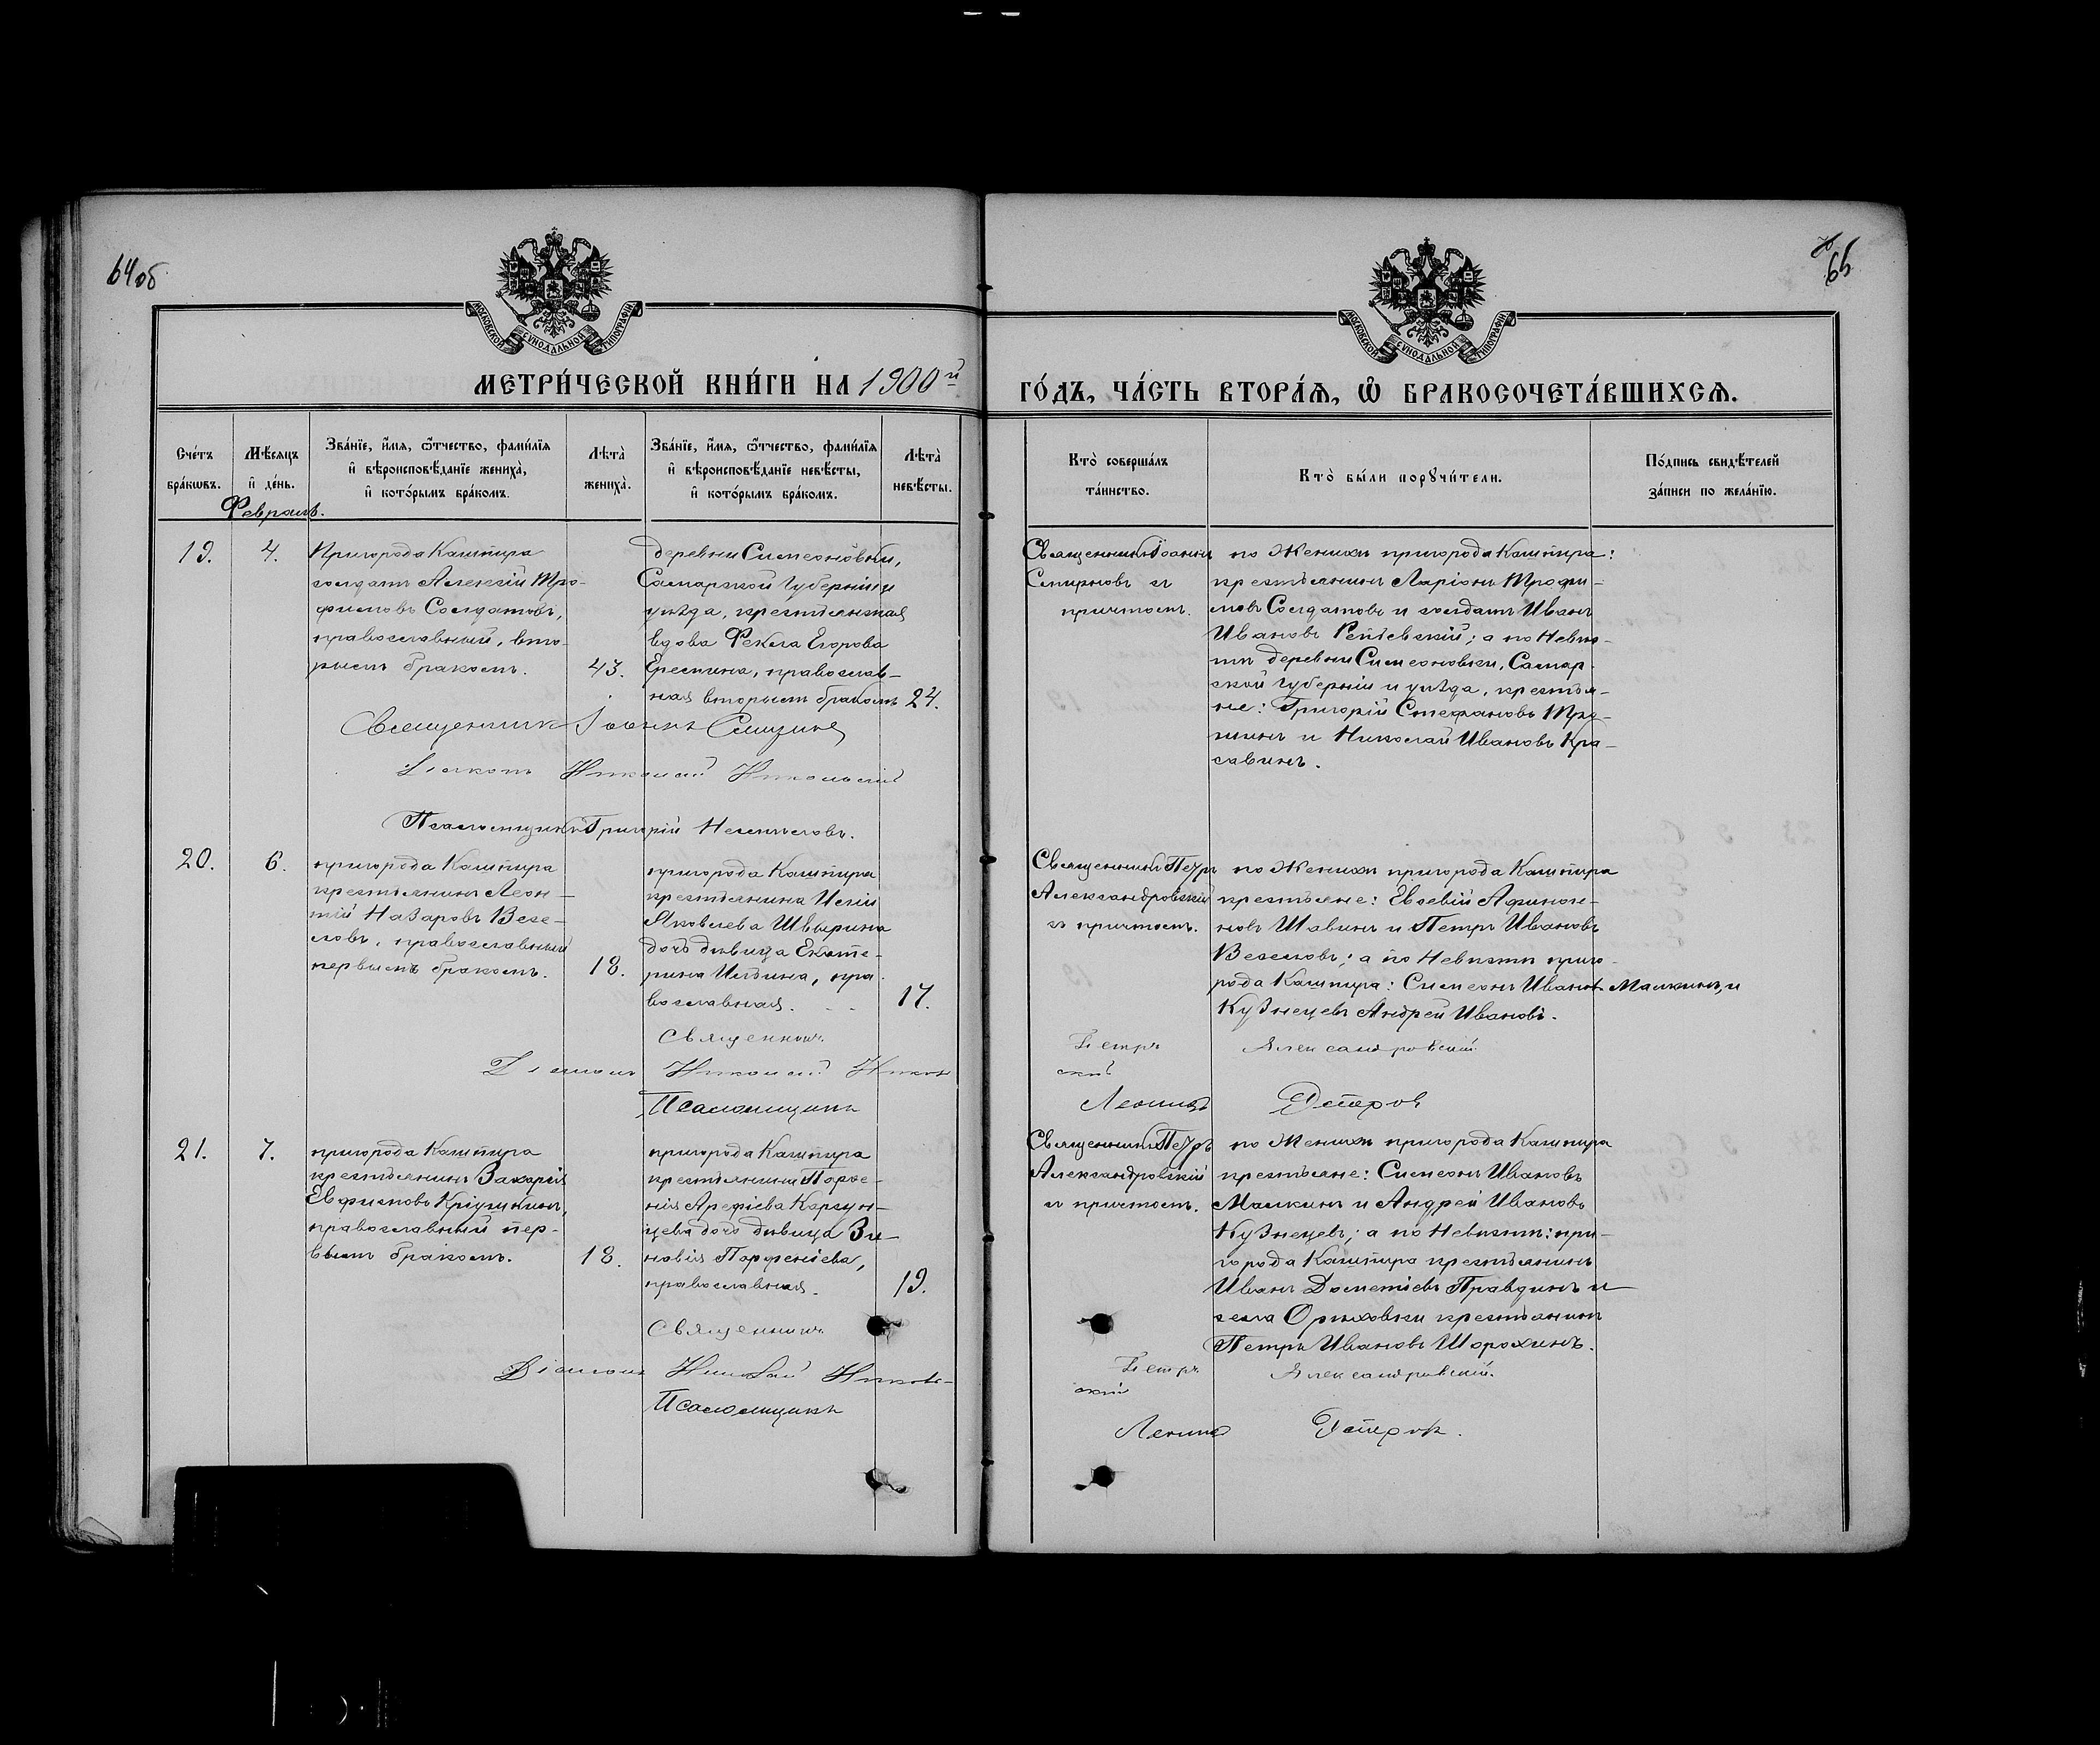 64об
65
МОСКОВСКОЙ СУНОДАЛЬНОЙ ТИПОГРАФІИ
МОСКОВСКОЙ СУНОДАЛЬНОЙ ТИПОГРАФІИ
МЕТРИ́ЧЕСКОЙ КНИ́ГИ НА 1900й
ГО́ДЪ, ЧА́СТЬ ВТОРА́Я, Ѿ БРАКОСОЧЕТА́ВШИХСѦ.
Сче́тъ
бра́кѡвъ.
Мѣ́сяцъ
и҆ де́нь.
Зва́нїе, и҆́мя, ѻ҆́тчество, фами́лїя
и҆ вѣроисповѣ́данїе жениха̀,
и҆ кото́рымъ бра́комъ.
Лѣта̀
жениха̀.
Зва́нїе, и҆́мя, ѻ҆́тчество, фами́лїя
и҆ вѣроисповѣ́данїе невѣ́сты,
и҆ кото́рымъ бра́комъ.
Лѣта̀
невѣ́сты.
Кто̀ соверша́лъ
та́инство.
Кто̀ бы́ли порꙋчи́тели.
По́дпись свидѣ́телей
за́писи по жела́нїю.
Февраль.
19.
4.
Пригорода Кашпира
солдатъ Алексій Тро-
фимовъ Солдатовъ,
православный, вто-
рымъ бракомъ.
43.
деревни Симеоновки,
Самарской губерніи и
уѣзда, крестьянская
вдова Фекла Егорова
Еремина, православ-
ная вторымъ бракомъ
24.
Священникъ Іоаннъ
Смирновъ съ
причтомъ.
по Женихѣ пригорода Кашпира:
крестьянинъ Ларіонъ Трофи-
мовъ Солдатовъ и солдатъ Иванъ
Ивановъ Репьевскій; а по Невѣс-
тѣ деревни Симеоновки, Самар-
ской губерніи и уѣзда, крестья-
не: Григорій Стефановъ
и Николай Ивановъ Кра-
савинъ.
Священникъ Іоаннъ Смирновъ
Діаконъ Николай Никольскій
Псаломщикъ Григорій
20.
6.
пригорода Кашпира
крестьянинъ Леон-
тій Назаровъ Весе-
ловъ, православный
первымъ бракомъ.
18.
пригорода Кашпира
крестьянина Иліи
Яковлева Швырина
дочь дѣвица Екате-
рина Ильина, пра-
вославная.
17.
Священникъ Петръ
Александровскій
съ причтомъ.
по Женихѣ пригорода Кашпира
крестьяне: Евсевій
Шавинъ и Петръ Ивановъ
Веселовъ; а по Невѣстѣ приго-
рода Кашпира: Симеонъ Ивановъ Малкинъ, и
Кузнецевъ Андрей Ивановъ.
Священникъ Петръ Александровскій
Діаконъ Николай Николь- скій
Псаломщикъ Леонидъ
21.
7.
пригорода Кашпира
крестьянинъ Захарій
Евфимовъ Кріушкинъ,
православный пер-
вымъ бракомъ.
18.
пригорода Кашпира
крестьянина Порфе-
нія Арефіева Карсун-
цева дочь дѣвица Зи-
новія Порфеніева,
православная.
19.
Священникъ Петръ
Александровскій
съ причтомъ.
по Женихѣ пригорода Кашпира
крестьяне: Симеонъ Ивановъ
Малкинъ и Андрей Ивановъ
Кузнецевъ; а по Невѣстѣ: при-
города Кашпира крестьянинъ
Иванъ Дометіевъ Правдинъ и
села Орѣховки крестьянинъ
Петръ Ивановъ Шорохинъ.
Священникъ Петръ Александровскій.
Діаконъ Николай Николь- скій
Псаломщикъ Леонидъ